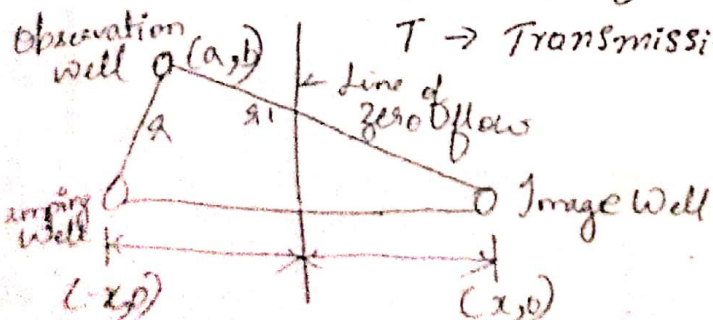 Observation
well (a,b)
T → Transmissi
Line of
zero flow
r
r1
umping
well
Image Well
(-x,0)
(x,0)